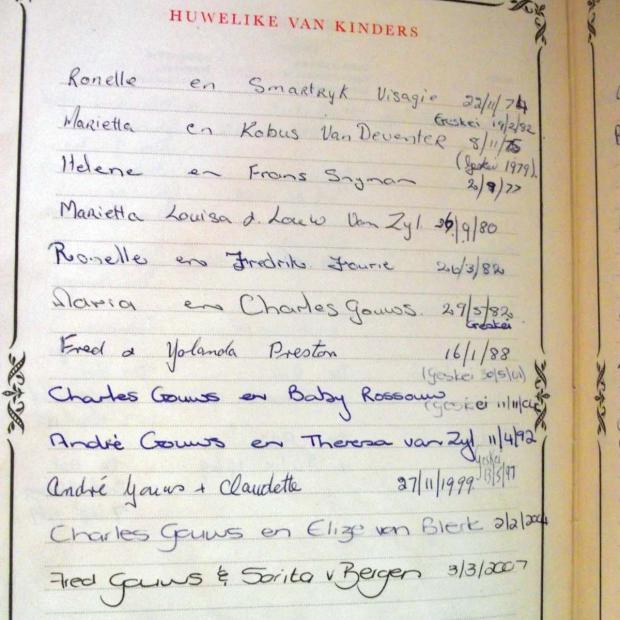 HUWELIKE VAN KINDERS
Ronelle en Smartryk Visagie 22/11/74
Geskei 19/2/82
Marietta en Kobus Van Deventer 8/11/75
(Geskei 1979).
Helene en Frans Snyman 20/8/77
Marietta Louisa & Louw Van Zyl. 26/9/80
Ronelle en Fredrik Fourie 26/3/82
Maria en Charles Gouws. 29/5/82
Geskei
Fred & Yolanda Preston 16/1/88
(Geskei 30/5/01)
Charles Gouws en Baby Rossouw
(Geskei 11/11/
André Gouws en Theresa van Zyl 11/4/92
Geskei
13/5/97
André Gouws + Claudette 27/11/1999
Charles Gouws en Elize van Blerk 2/2/2004
Fred Gouws & Sarita v Bergen 3/3/2007